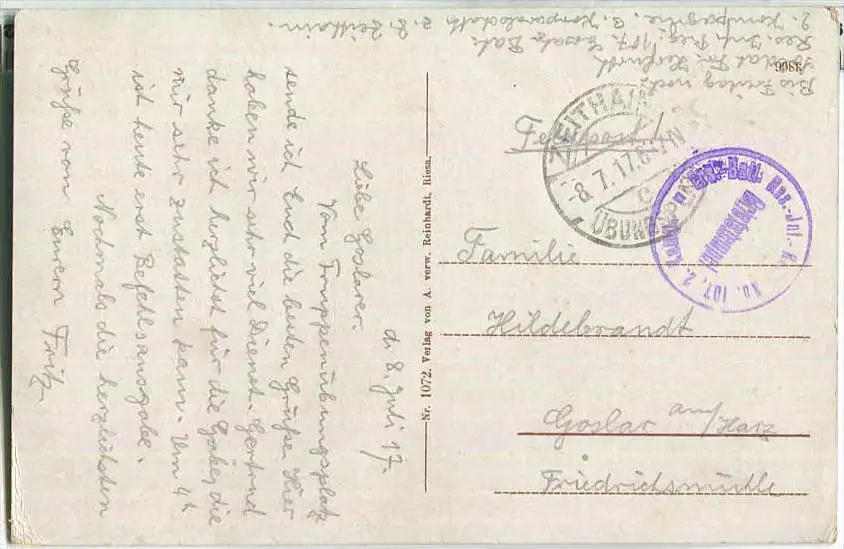 d. 8. Juli 17.
Liebe Goslarer.
Vom Truppenübungsplatz
sende ich Euch die besten Grüße. Hier
haben wir sehr viel Dienst. Gertrud
danke ich herzlichst für die Gabe, die
mir sehr zustatten kam. Um 4h
ist heute erst Befehlsausgabe.
Nochmals die herzlichsten
Grüße von Eurem Fritz
Nr. 1072. Verlag von A. verw. Reinhardt, Riesa.
Bis Freitag noch:
Soldat Fr.
Res. Inf. Reg. 107. Ersatz Bat.
2. Kompagnie, 3. Korporalschaft z. Z. Zeithain.
3806
Feldpost!
ZEITHAIN
-8.7.17.6-7N
C
ÜBUNGS
Ers.-Batl. Res.-Inf.-R.
No. 107, 2.
Familie
Hildebrandt
Goslar am/Harz
Friedrichsmühle